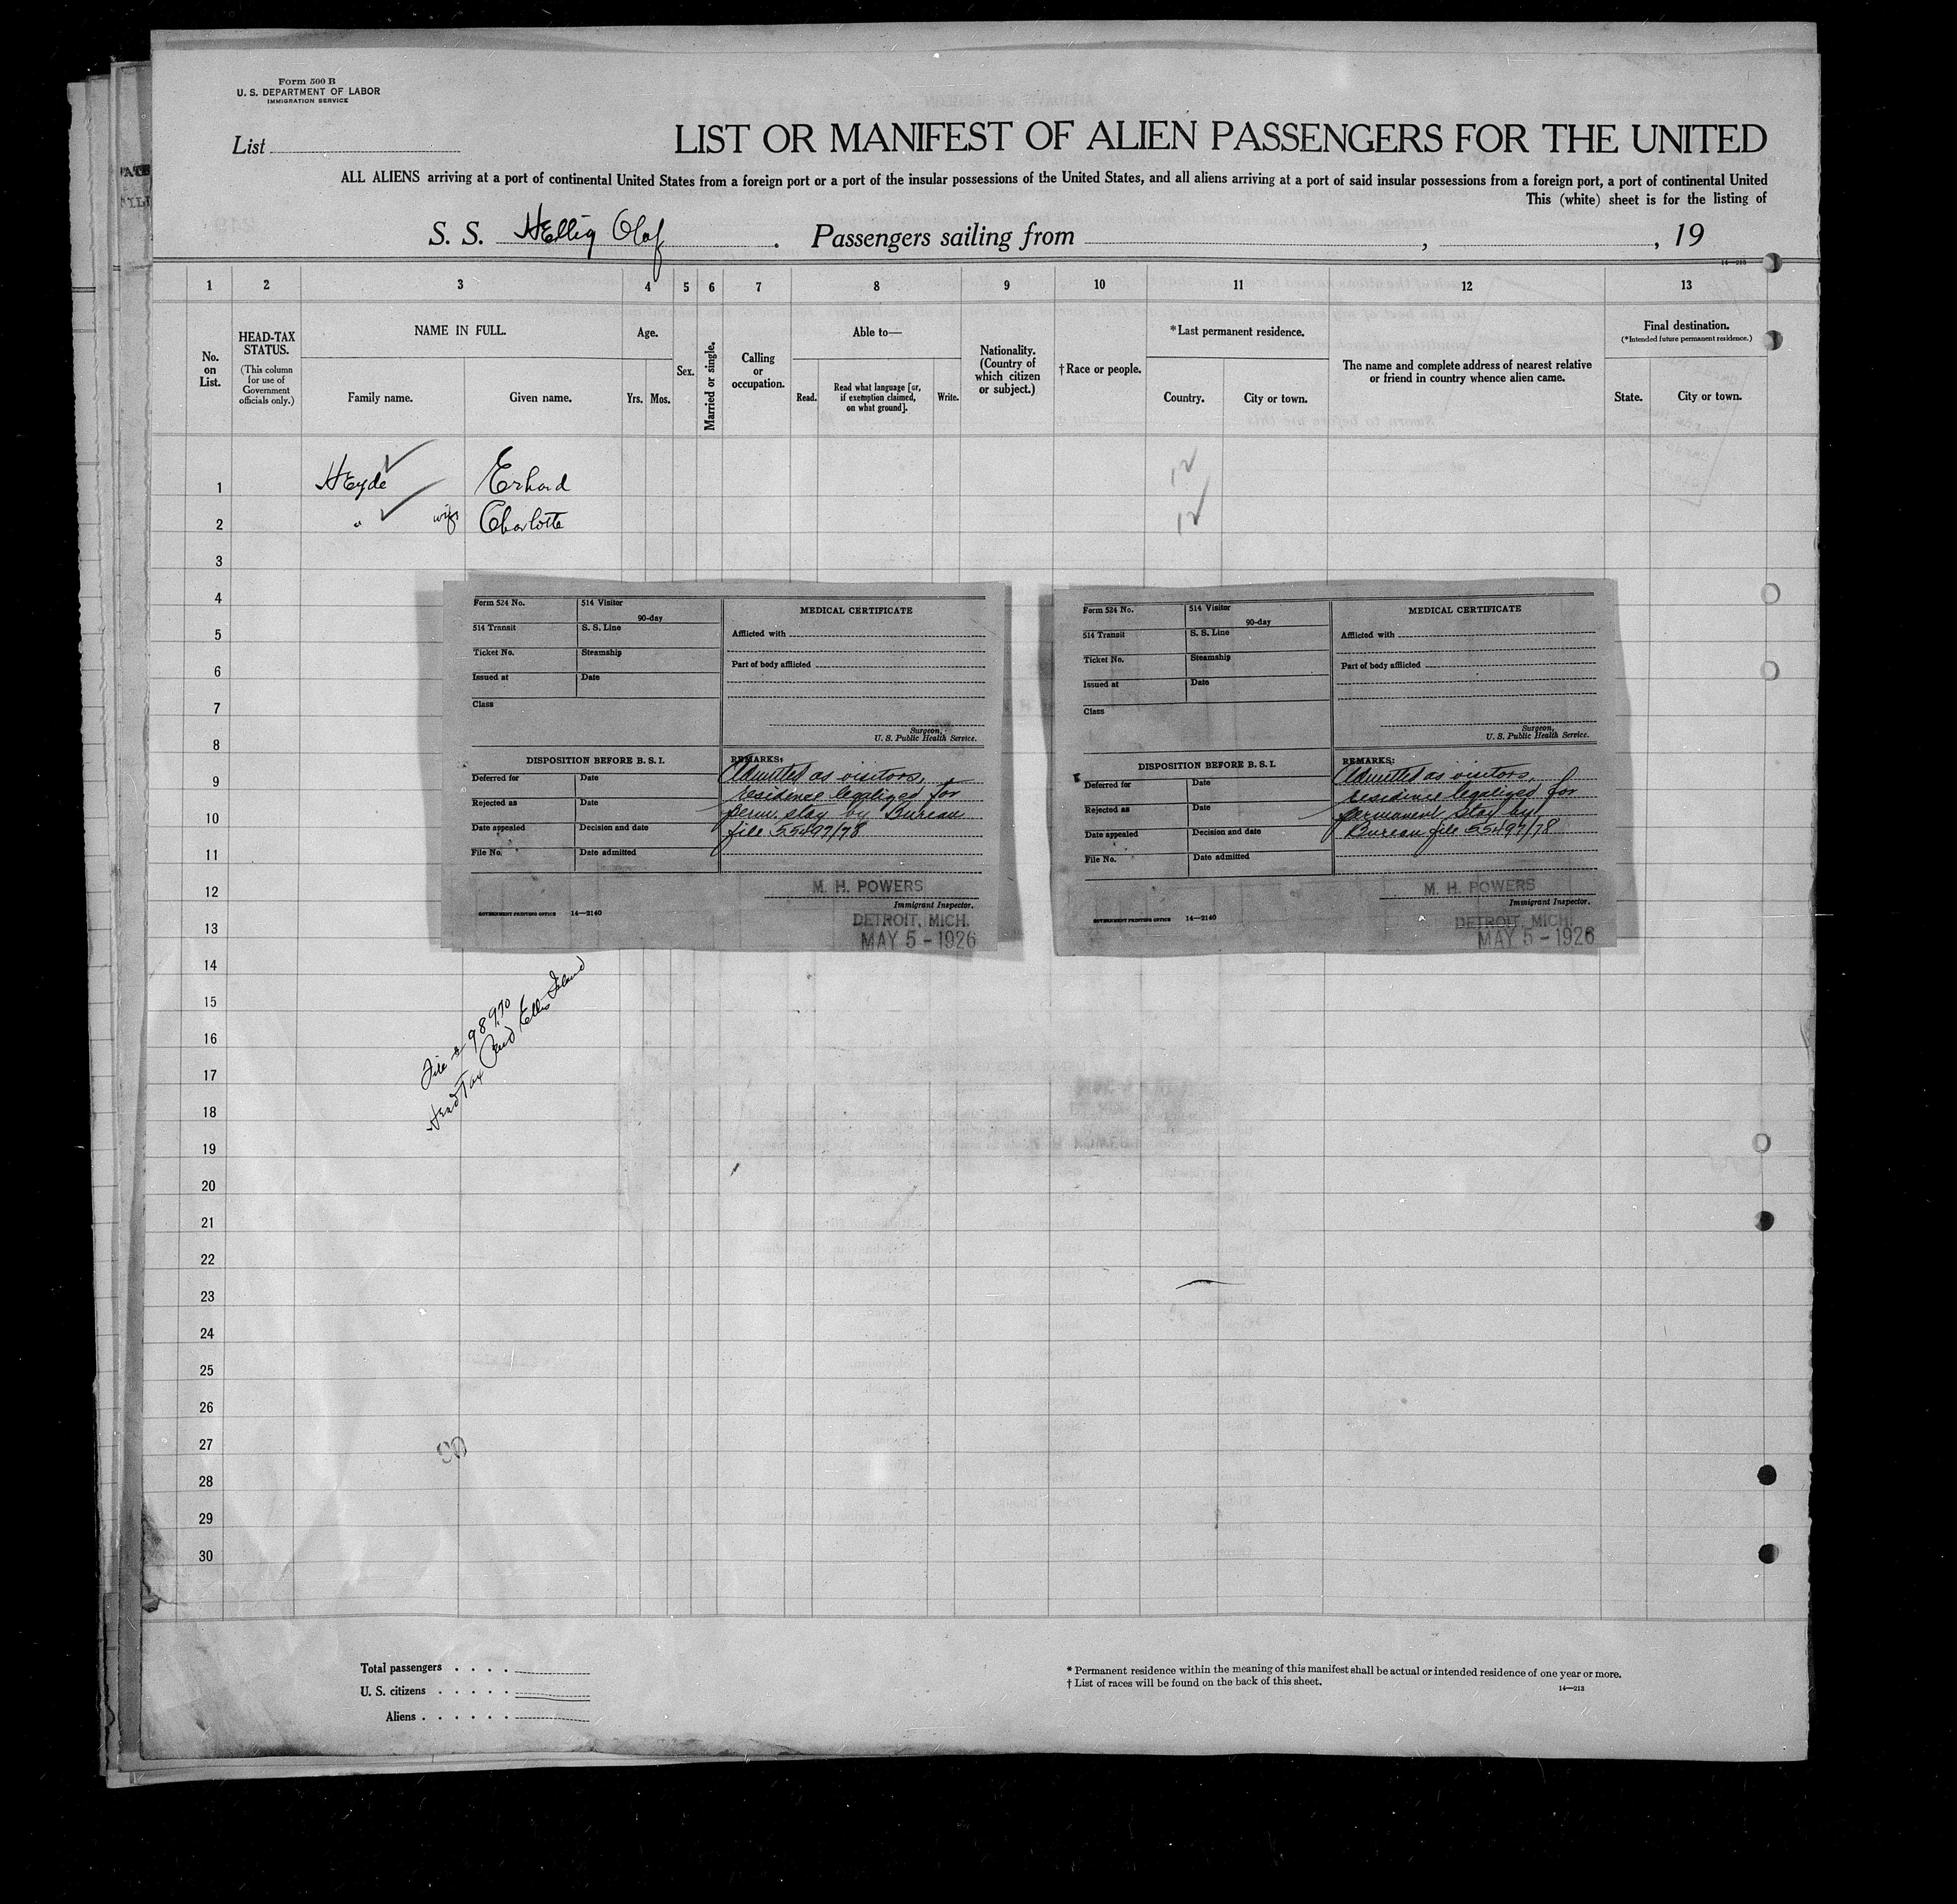 Form 500 B
U. S. DEPARTMENT OF LABOR
IMMIGRATION SERVICE
List
LIST OR MANIFEST OF ALIEN PASSENGERS FOR THE UNITED
ALL ALIENS arriving at a port of continental United States from a foreign port or a port of the insular possessions of the United States, and all aliens arriving at a port of said insular possessions from a foreign port, a port of continental United
This (white) sheet is for the listing of
S. S. Hellig Olaf. Passengers sailing from , , 19
14—213
1 2 3 4 5 6 7 8 9 10 11 12 13
No. on List.
HEAD-TAX STATUS.
(This column for use of Government officials only.)
NAME IN FULL.
Family name. Given name.
Age.
Yrs. Mos.
Sex.
Married or single.
Calling or occupation.
Able to—
Read. Read what language [or, if exemption claimed, on what ground]. Write.
Nationality. (Country of which citizen or subject.)
†Race or people.
*Last permanent residence.
Country. City or town.
The name and complete address of nearest relative or friend in country whence alien came.
Final destination.
(*Intended future permanent residence.)
State. City or town.
1 Heyde Erhard 12
2 " wife Charlotte 12
3
4
5
6
7
8
9
10
11
12
13
14
15
16
17
18
19
20
21
22
23
24
25
26
27
28
29
30
Form 524 No. 514 Visitor
90-day
514 Transit S. S. Line
Ticket No. Steamship
Issued at Date
Class
MEDICAL CERTIFICATE
Afflicted with
Part of body afflicted
Surgeon,
U. S. Public Health Service.
DISPOSITION BEFORE B. S. I.
Deferred for Date
Rejected as Date
Date appealed Decision and date
File No. Date admitted
REMARKS:
Admitted as visitors,
residence legalized for
perm. stay by Bureau
file 55497/78
M. H. POWERS
Immigrant Inspector.
GOVERNMENT PRINTING OFFICE 14—2140
DETROIT, MICH.
MAY 5 - 1926
Form 524 No. 514 Visitor
90-day
514 Transit S. S. Line
Ticket No. Steamship
Issued at Date
Class
MEDICAL CERTIFICATE
Afflicted with
Part of body afflicted
Surgeon,
U. S. Public Health Service.
DISPOSITION BEFORE B. S. I.
Deferred for Date
Rejected as Date
Date appealed Decision and date
File No. Date admitted
REMARKS:
Admitted as visitors,
residence legalized for
permanent stay by
Bureau file 55497/78
M. H. POWERS
Immigrant Inspector.
GOVERNMENT PRINTING OFFICE 14—2140
DETROIT, MICH.
MAY 5 - 1926
File # 98970
Head Tax Paid Ellis Island
Total passengers . . . .
U. S. citizens . . . . .
Aliens . . . . . .
* Permanent residence within the meaning of this manifest shall be actual or intended residence of one year or more.
† List of races will be found on the back of this sheet.
14—213